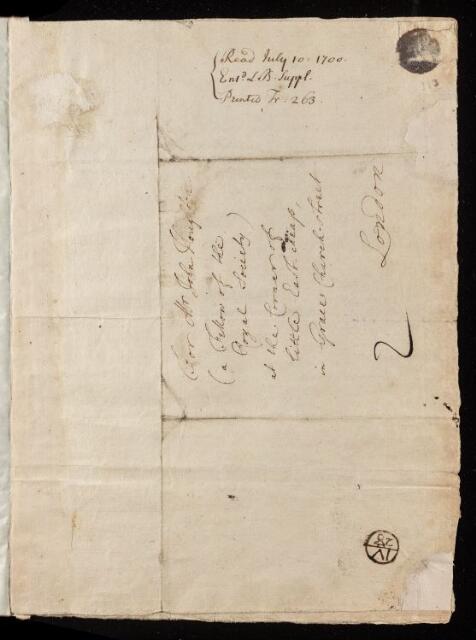 Read July 10. 1700.
Entd L.B. Suppl.
Printed Tr: 263
113
For Mr John Houghton
(a Fellow of the
Royal Society)
at the Corner of
little East cheap,
in Grace Church-Street
London
2
IV
28